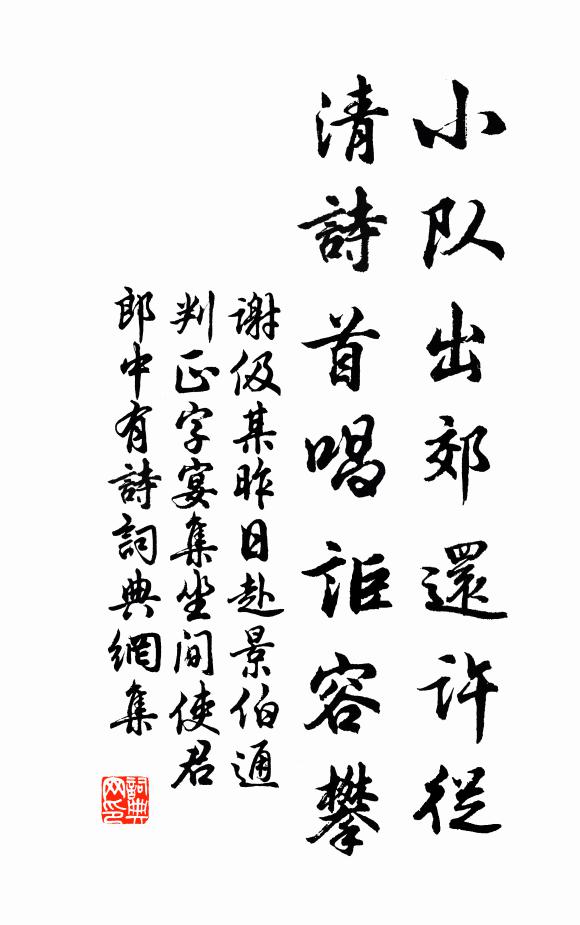 小队出郊還许從
清詩首唱詎容攀
谢伋某昨日赴景伯通
判正字宴集坐间使君
郎中有詩詞典網集
詞典
网印